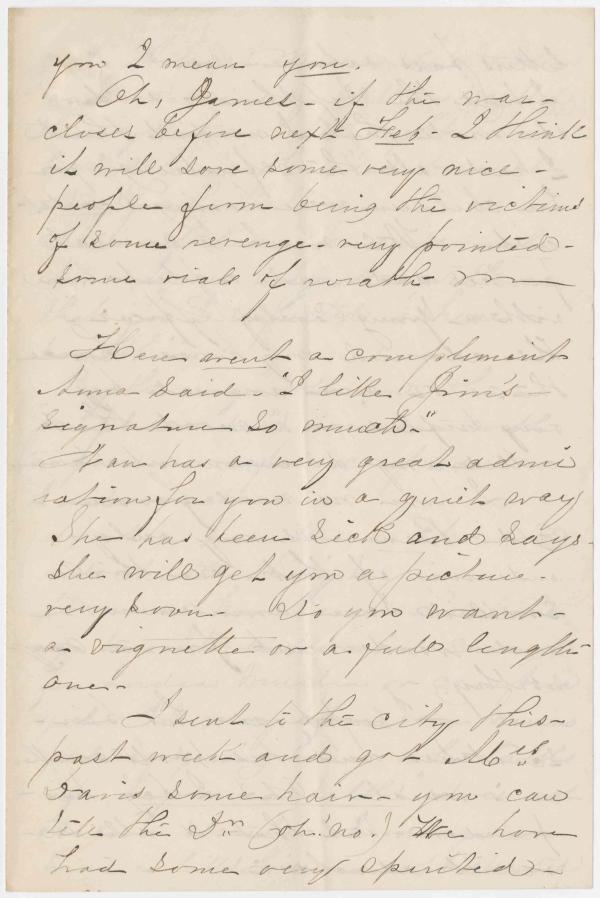 you I mean you.
Oh, James - if the war -
closes before next Feb - I think
it will save some very nice -
people from being the victims
of some revenge - very pointed -
some vials of wrath
Here went a compliment
Anna said - "I like Jim's -
signature so much -"
has a very great admi
ration for you in a quiet way
She has been sick and says -
she will get you a picture -
very soon - Do you want -
a vignette or a full length -
one -
I sent to the city this -
past week and got Mrs
Davis some hair - you can
tell the Dr (oh! no.) We have
had some very spirited -